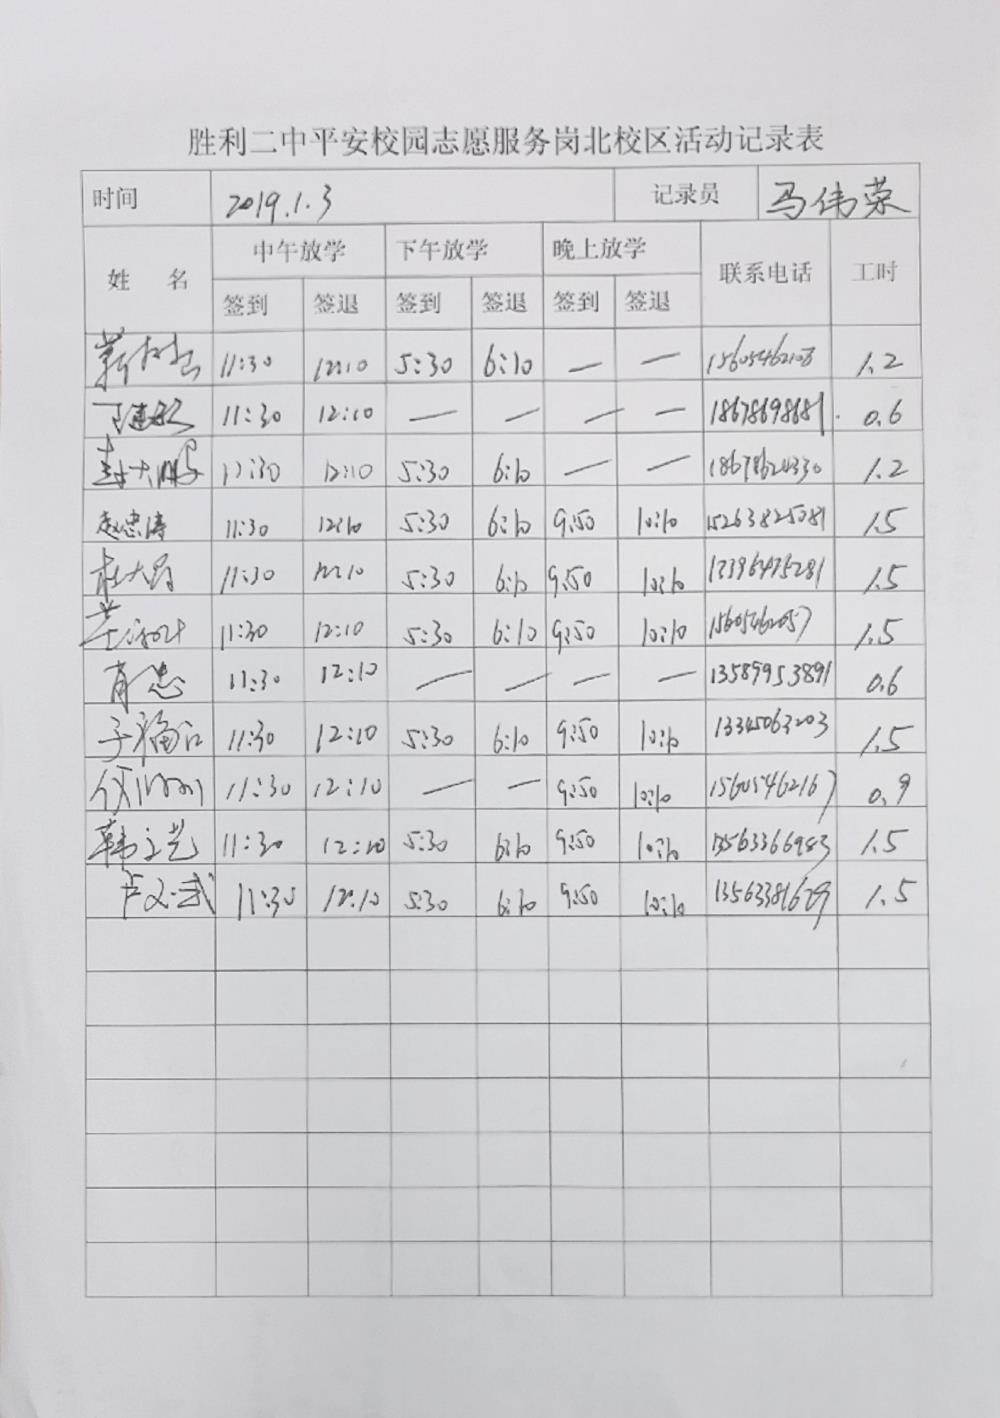 胜利二中平安校园志愿服务岗北校区活动记录表
时间 2019.1.3 记录员 马伟荣
姓 名 中午放学 下午放学 晚上放学 联系电话 工时
签到 签退 签到 签退 签到 签退
11:30 12:10 5:30 6:10 — — 1.2
11:30 12:10 — — — — 18678698681 0.6
11:30 12:10 5:30 6:10 — — 18678624330 1.2
赵忠涛 11:30 12:10 5:30 6:10 9:50 10:10 15263825081 1.5
11:30 12:10 5:30 6:10 9:50 10:10 1.5
11:30 12:10 5:30 6:10 9:50 10:10 15605462057 1.5
肖忠 11:30 12:10 — — — — 13589953891 0.6
11:30 12:10 5:30 6:10 9:50 10:10 13345063203 1.5
11:30 12:10 — — 9:50 10:10 15605462167 0.9
韩立艺 11:30 12:10 5:30 6:10 9:50 10:10 13563366983 1.5
卢文武 11:30 12:10 5:30 6:10 9:50 10:10 1.5